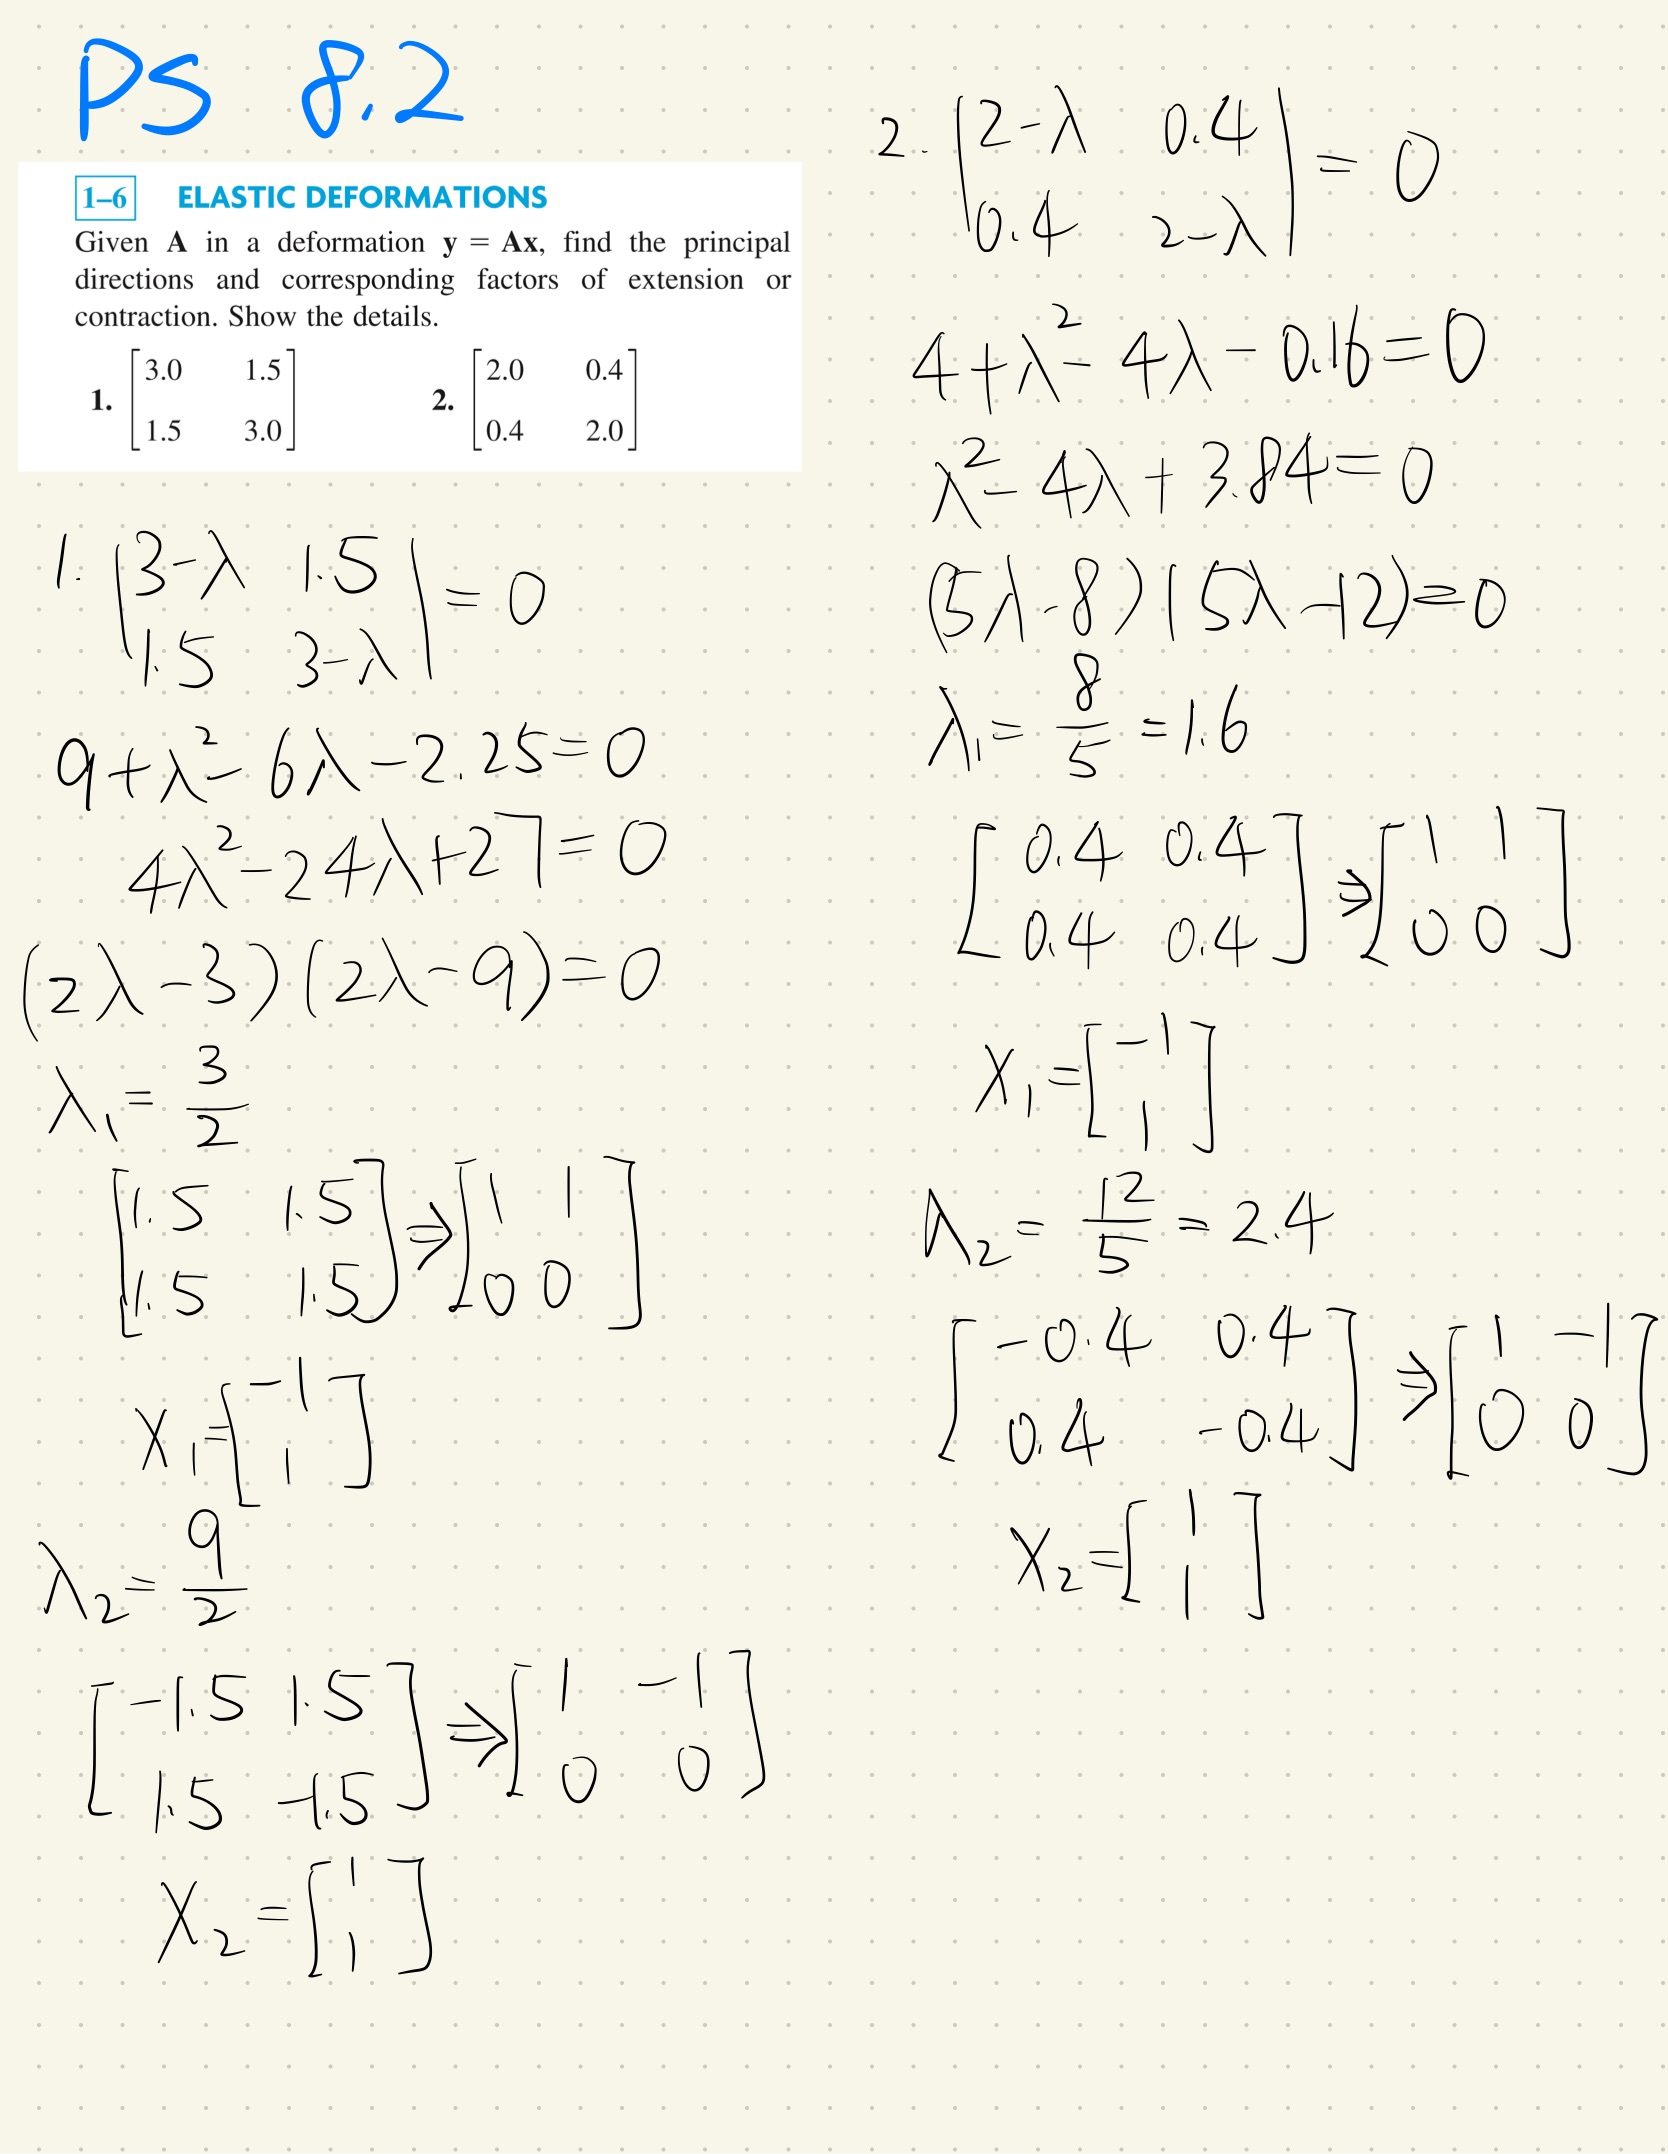 PS 8.2
1–6 ELASTIC DEFORMATIONS
Given A in a deformation y = Ax, find the principal
directions and corresponding factors of extension or
contraction. Show the details.
1. [3.0 1.5
1.5 3.0]
2. [2.0 0.4
0.4 2.0]
1. |3-λ 1.5
1.5 3-λ| = 0
9+λ²-6λ-2.25=0
4λ²-24λ+27=0
(2λ-3)(2λ-9)=0
λ₁= 3/2
[1.5 1.5
1.5 1.5] ⇒ [1 1
0 0]
X₁=[-1
1]
λ₂= 9/2
[-1.5 1.5
1.5 -1.5] ⇒ [1 -1
0 0]
X₂=[1
1]
2. |2-λ 0.4
0.4 2-λ| = 0
4+λ²-4λ-0.16=0
λ²-4λ+3.84=0
(5λ-8)(5λ-12)=0
λ₁= 8/5 =1.6
[0.4 0.4
0.4 0.4] ⇒ [1 1
0 0]
X₁=[-1
1]
λ₂= 12/5 = 2.4
[-0.4 0.4
0.4 -0.4] ⇒ [1 -1
0 0]
X₂=[1
1]